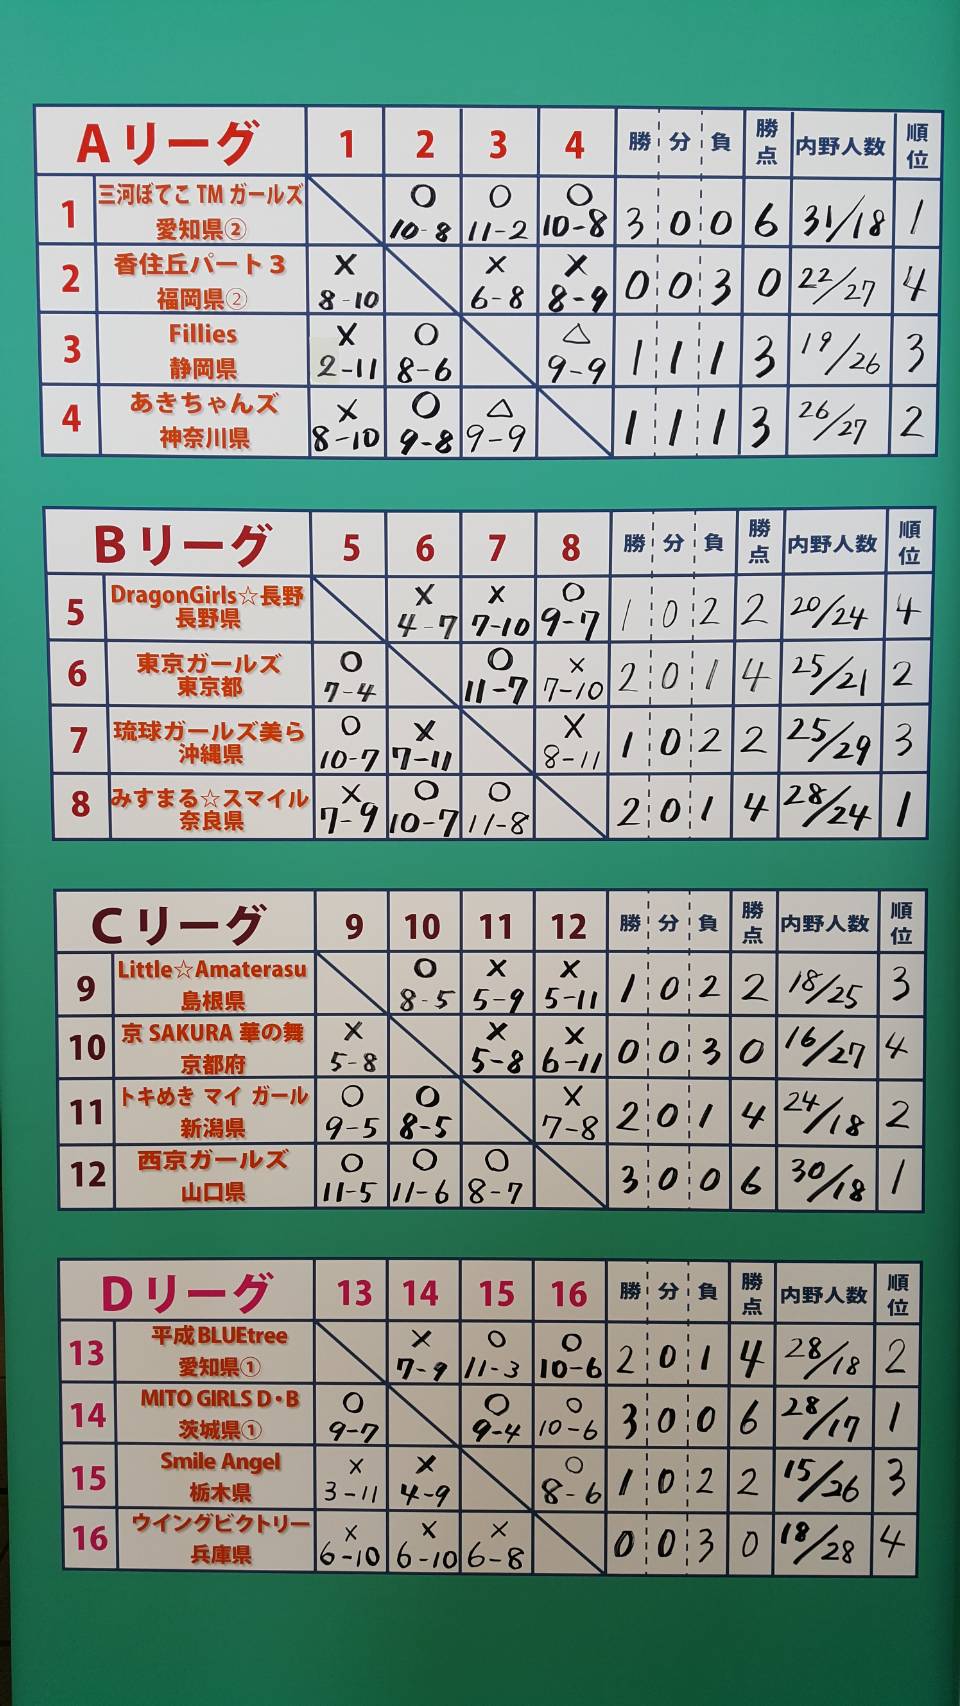 Aリーグ 1 2 3 4 勝 分 負 勝点 内野人数 順位
1 三河ぽてこ TM ガールズ ○ ○ ○
愛知県② 10-8 11-2 10-8 3 0 0 6 31/18 1
2 香住丘パート3 × × ×
福岡県② 8-10 6-8 8-9 0 0 3 0 22/27 4
3 Fillies × ○ △
静岡県 2-11 8-6 9-9 1 1 1 3 19/26 3
4 あきちゃんズ × ○ △
神奈川県 8-10 9-8 9-9 1 1 1 3 26/27 2
Bリーグ 5 6 7 8 勝 分 負 勝点 内野人数 順位
5 DragonGirls☆長野 × × ○
長野県 4-7 7-10 9-7 1 0 2 2 20/24 4
6 東京ガールズ ○ ○ ×
東京都 7-4 11-7 7-10 2 0 1 4 25/21 2
7 琉球ガールズ美ら ○ × ×
沖縄県 10-7 7-11 8-11 1 0 2 2 25/29 3
8 みすまる☆スマイル × ○ ○
奈良県 7-9 10-7 11-8 2 0 1 4 28/24 1
Cリーグ 9 10 11 12 勝 分 負 勝点 内野人数 順位
9 Little☆Amaterasu ○ × ×
島根県 8-5 5-9 5-11 1 0 2 2 18/25 3
10 京 SAKURA 華の舞 × × ×
京都府 5-8 5-8 6-11 0 0 3 0 16/27 4
11 トキめき マイ ガール ○ ○ ×
新潟県 9-5 8-5 7-8 2 0 1 4 24/18 2
12 西京ガールズ ○ ○ ○
山口県 11-5 11-6 8-7 3 0 0 6 30/18 1
Dリーグ 13 14 15 16 勝 分 負 勝点 内野人数 順位
13 平成BLUEtree × ○ ○
愛知県① 7-9 11-3 10-6 2 0 1 4 28/18 2
14 MITO GIRLS D・B ○ ○ ○
茨城県① 9-7 9-4 10-6 3 0 0 6 28/17 1
15 Smile Angel × × ○
栃木県 3-11 4-9 8-6 1 0 2 2 15/26 3
16 ウイングビクトリー × × ×
兵庫県 6-10 6-10 6-8 0 0 3 0 18/28 4